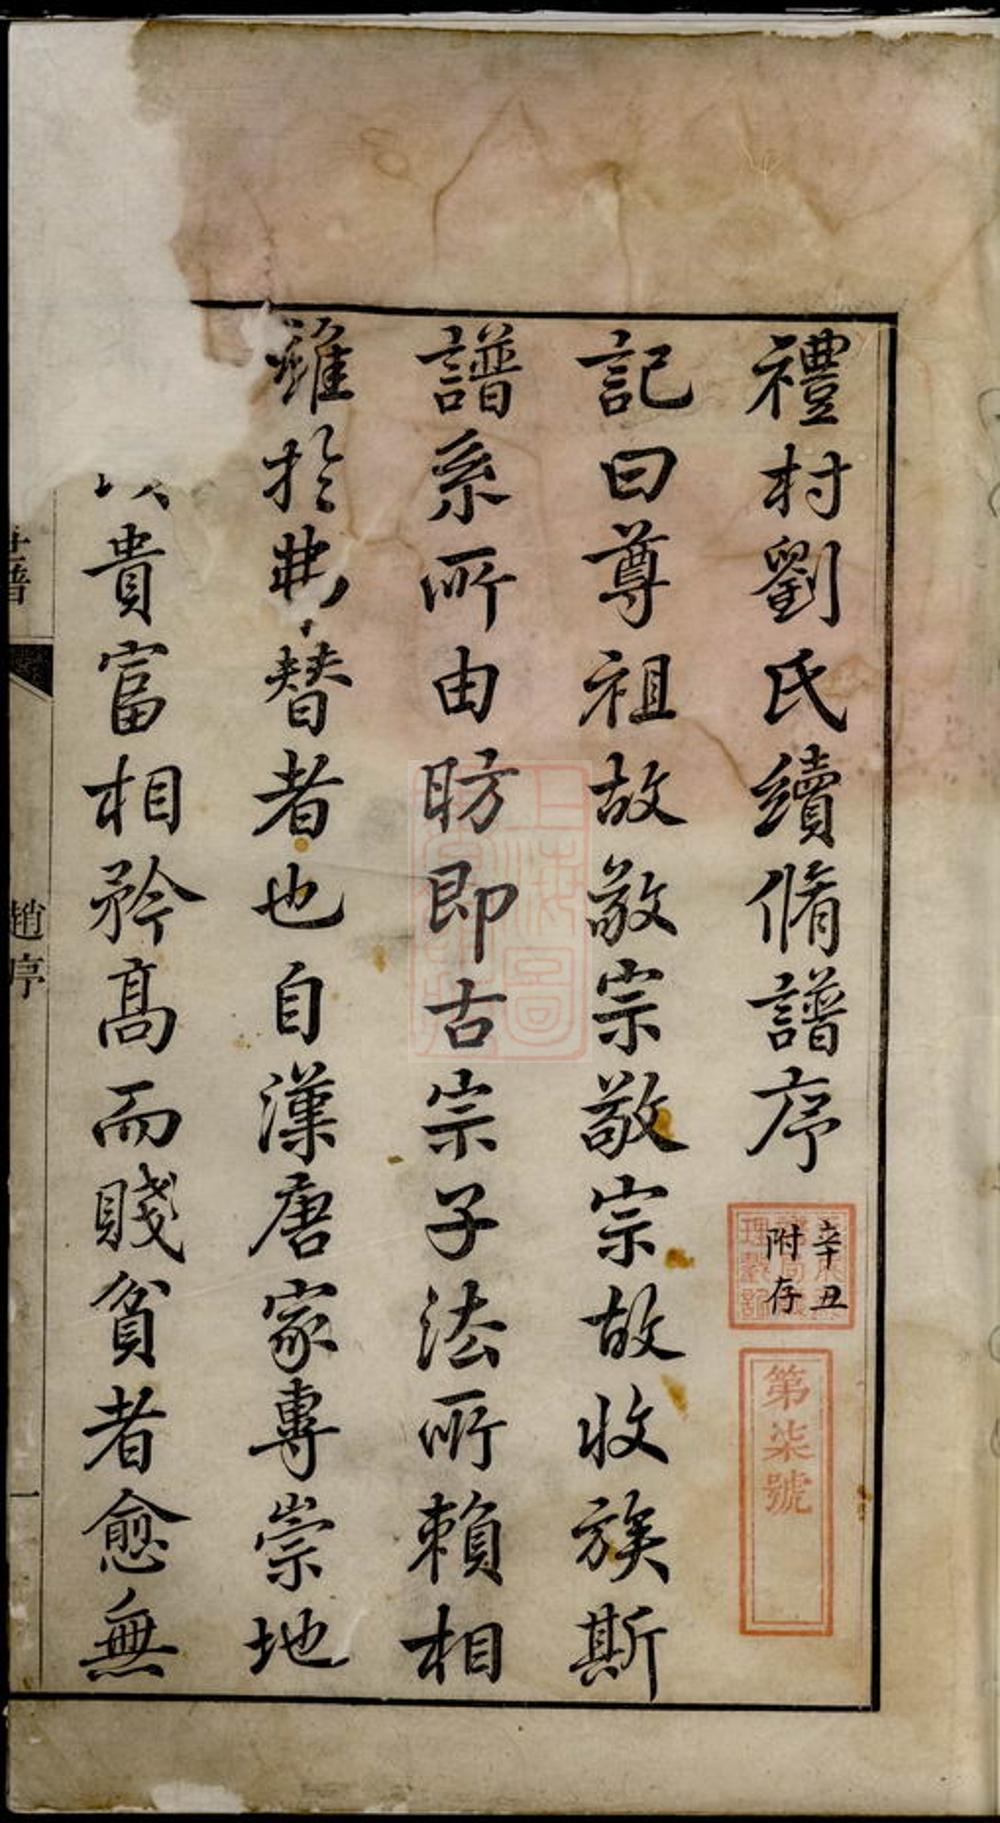 禮村劉氏續脩譜序
辛丑
附存
第柒號
記曰尊祖故敬宗敬宗故收族斯
譜系所由昉即古宗子法所賴相
維於弗替者也自漢唐家專崇地
以貴富相矜高而賤貧者愈無
譜
趙序
一
上海圖